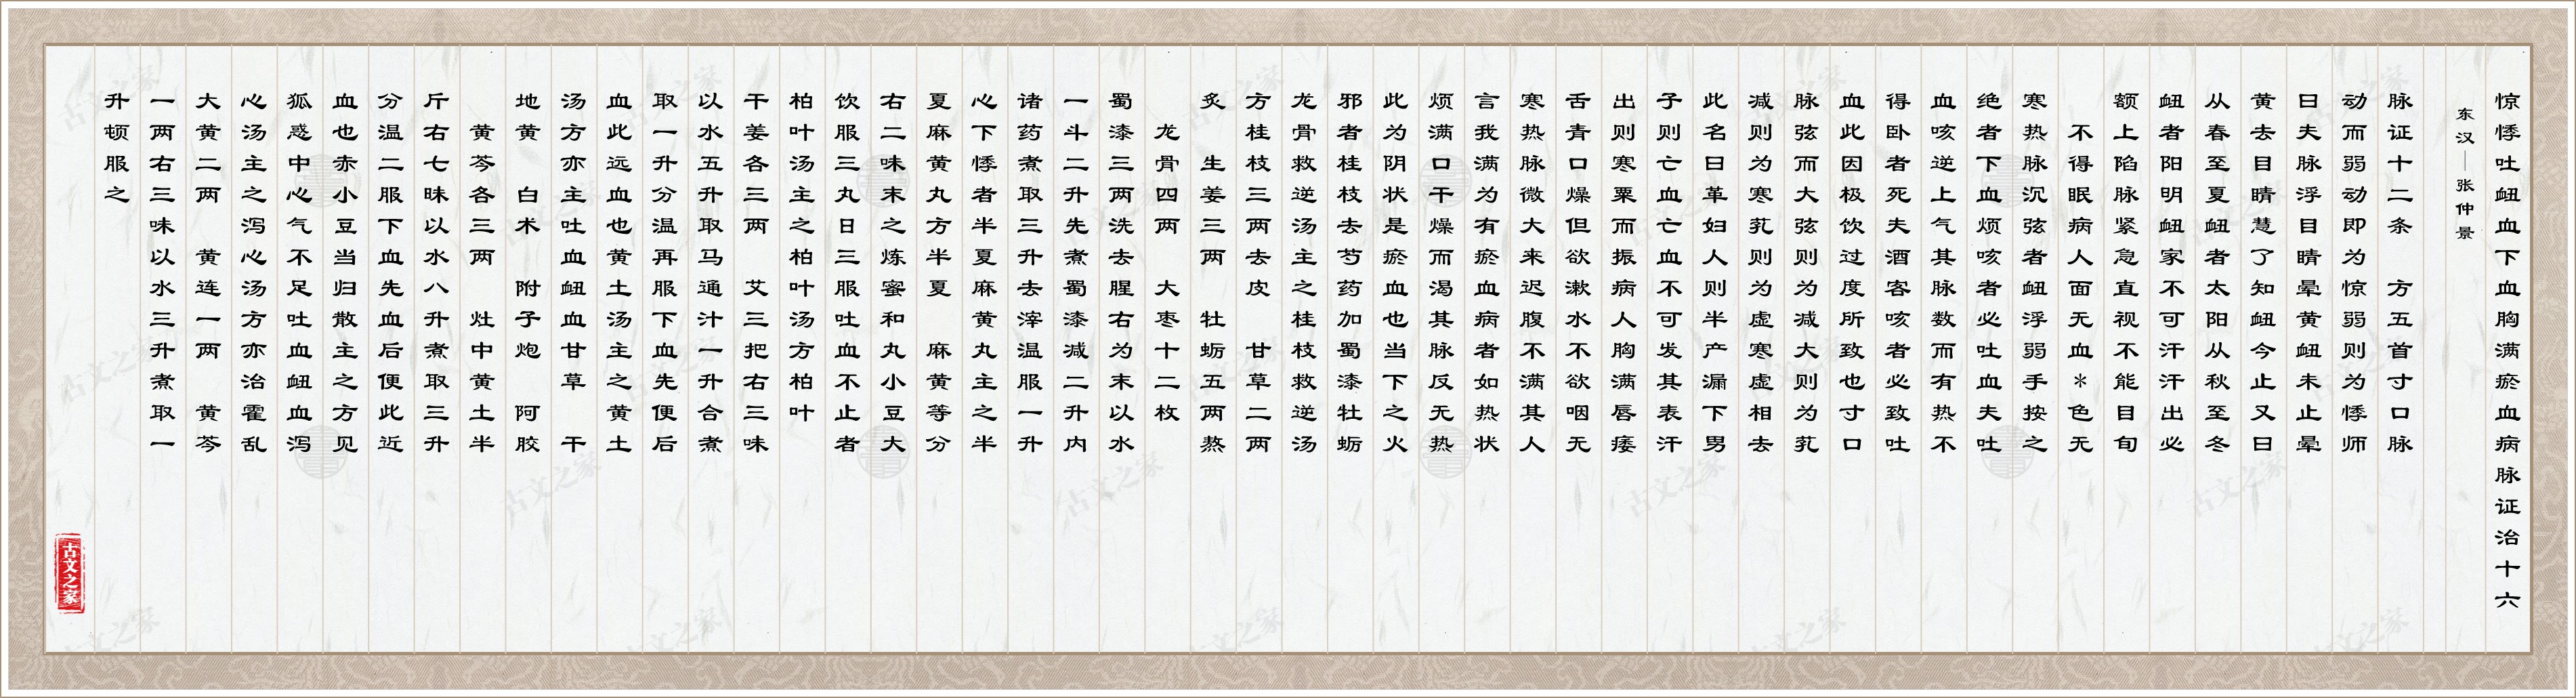 惊悸吐衄血下血胸满瘀血病脉证治十六
东汉—张仲景
脉证十二条　方五首寸口脉
动而弱动即为惊弱则为悸师
曰夫脉浮目睛晕黄衄未止晕
黄去目睛慧了知衄今止又曰
从春至夏衄者太阳从秋至冬
衄者阳明衄家不可汗汗出必
额上陷脉紧急直视不能目旬
不得眠病人面无血＊色无
寒热脉沉弦者衄浮弱手按之
绝者下血烦咳者必吐血夫吐
血咳逆上气其脉数而有热不
得卧者死夫酒客咳者必致吐
血此因极饮过度所致也寸口
脉弦而大弦则为减大则为芤
减则为寒芤则为虚寒虚相去
此名曰革妇人则半产漏下男
子则亡血亡血不可发其表汗
出则寒粟而振病人胸满唇痿
舌青口燥但欲漱水不欲咽无
寒热脉微大来迟腹不满其人
言我满为有瘀血病者如热状
烦满口干燥而渴其脉反无热
此为阴状是瘀血也当下之火
邪者桂枝去芍药加蜀漆牡蛎
龙骨救逆汤主之桂枝救逆汤
方桂枝三两去皮　甘草二两
炙　生姜三两　牡蛎五两熬
龙骨四两　大枣十二枚
蜀漆三两洗去腥右为末以水
一斗二升先煮蜀漆减二升内
诸药煮取三升去滓温服一升
心下悸者半夏麻黄丸主之半
夏麻黄丸方半夏　麻黄等分
右二味末之炼蜜和丸小豆大
饮服三丸日三服吐血不止者
柏叶汤主之柏叶汤方柏叶
干姜各三两　艾三把右三味
以水五升取马通汁一升合煮
取一升分温再服下血先便后
血此远血也黄土汤主之黄土
汤方亦主吐血衄血甘草　干
地黄　白术　附子炮　阿胶
黄芩各三两　灶中黄土半
斤右七味以水八升煮取三升
分温二服下血先血后便此近
血也赤小豆当归散主之方见
狐惑中心气不足吐血衄血泻
心汤主之泻心汤方亦治霍乱
大黄二两　黄连一两　黄芩
一两右三味以水三升煮取一
升顿服之
古文之家